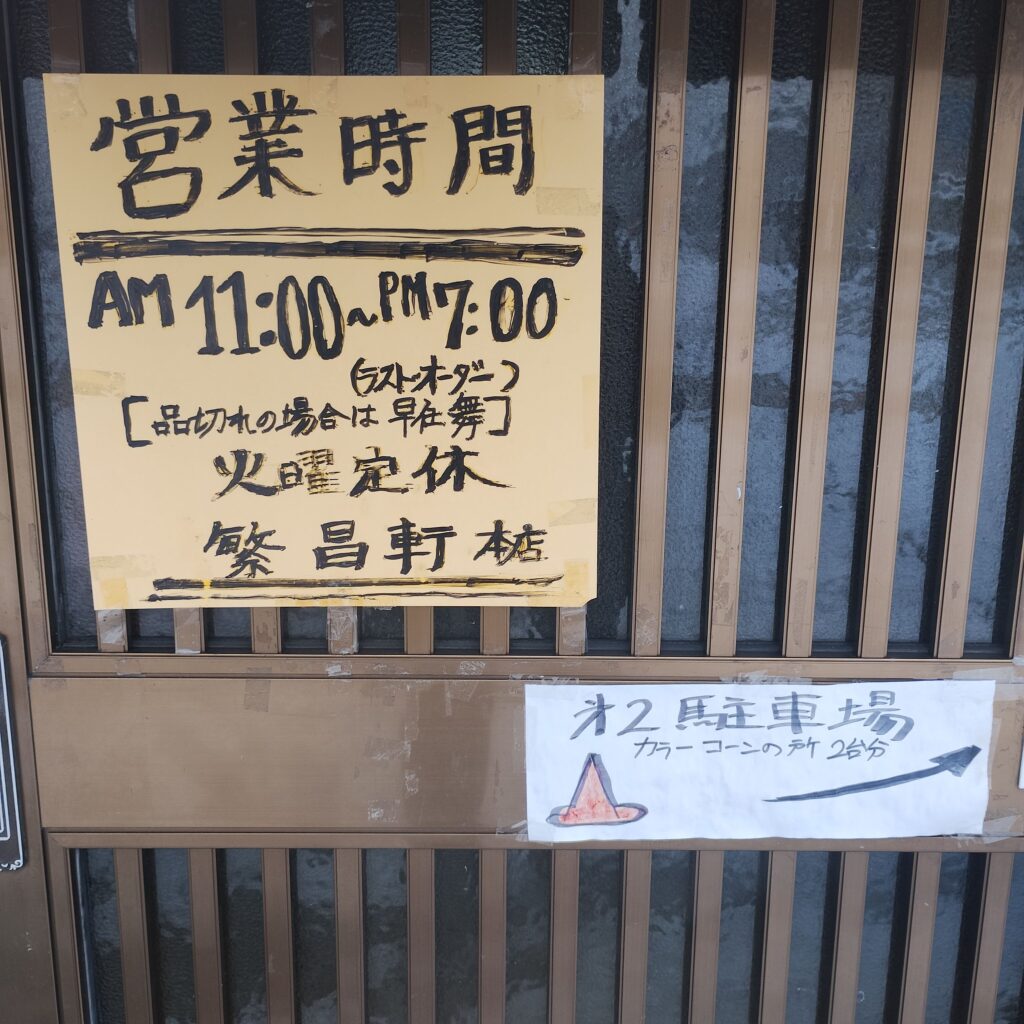 営業時間
AM11:00~PM7:00
(ラストオーダー)
[品切れの場合は早仕舞]
火曜定休
繁昌軒 本店
才2駐車場
カラーコーンの所 2台分